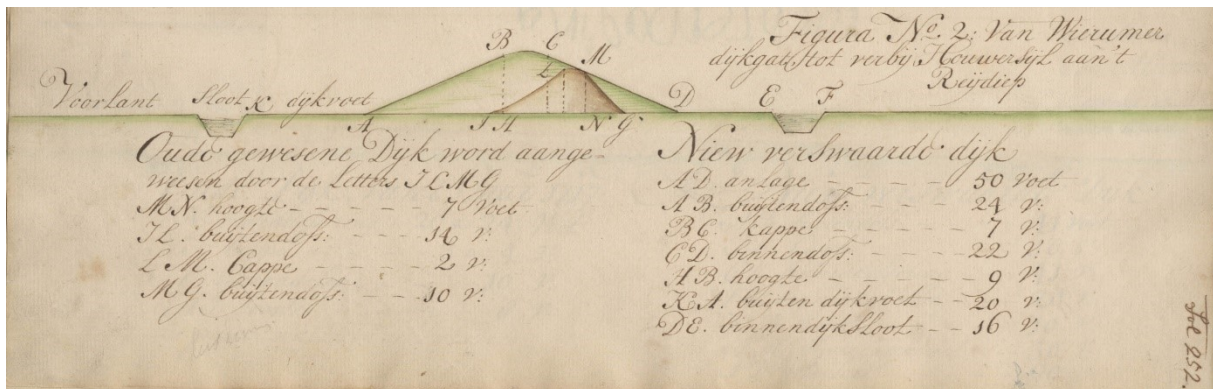 Figura No. 2: Van Wierumer
dijkgat, tot verbij Houwersijl aan't
Reijdiep
B C M
L
Voorlant sloot K dijkvoet D E F
A I H N G
Oude gewesene Dijk word aange-
weesen door de Letters I L M G
MN. hoogte - - - - - 7 Voet
IL. buijtendoss: - - - 14 v:
LM. Cappe - - - - - 2 v:
MG. buijtendoss: - - - 10 v:
Niew verswaarde dijk
AD. anlage - - - - - 50 Voet
AB. buijtendoss: - - - - 24 v:
BC. kappe - - - - - - 7 v:
CD. binnendoss: - - - - 22 v:
HB. hoogte - - - - - 9 v:
KA. buijten dijkvoet - - 20 v:
DE. binnendijk sloot - - 16 v:
Fol 252